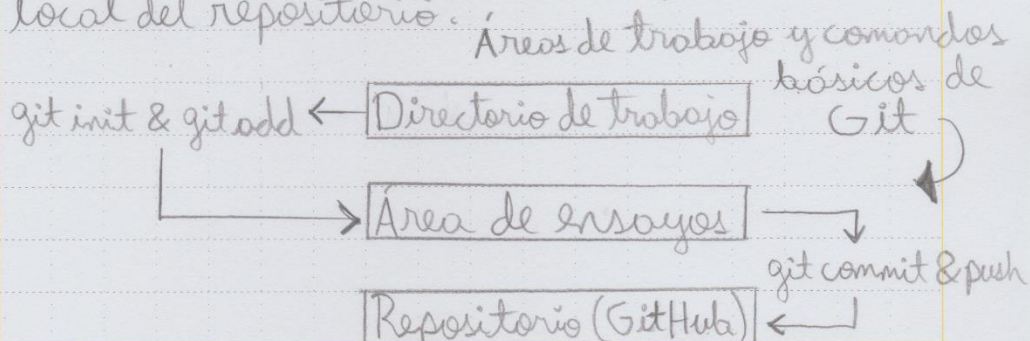 local del repositorio.
Áreas de trabajo y comandos
básicos de
Git
git init & git add
Directorio de trabajo
Área de ensayos
git commit & push
Repositorio (GitHub)